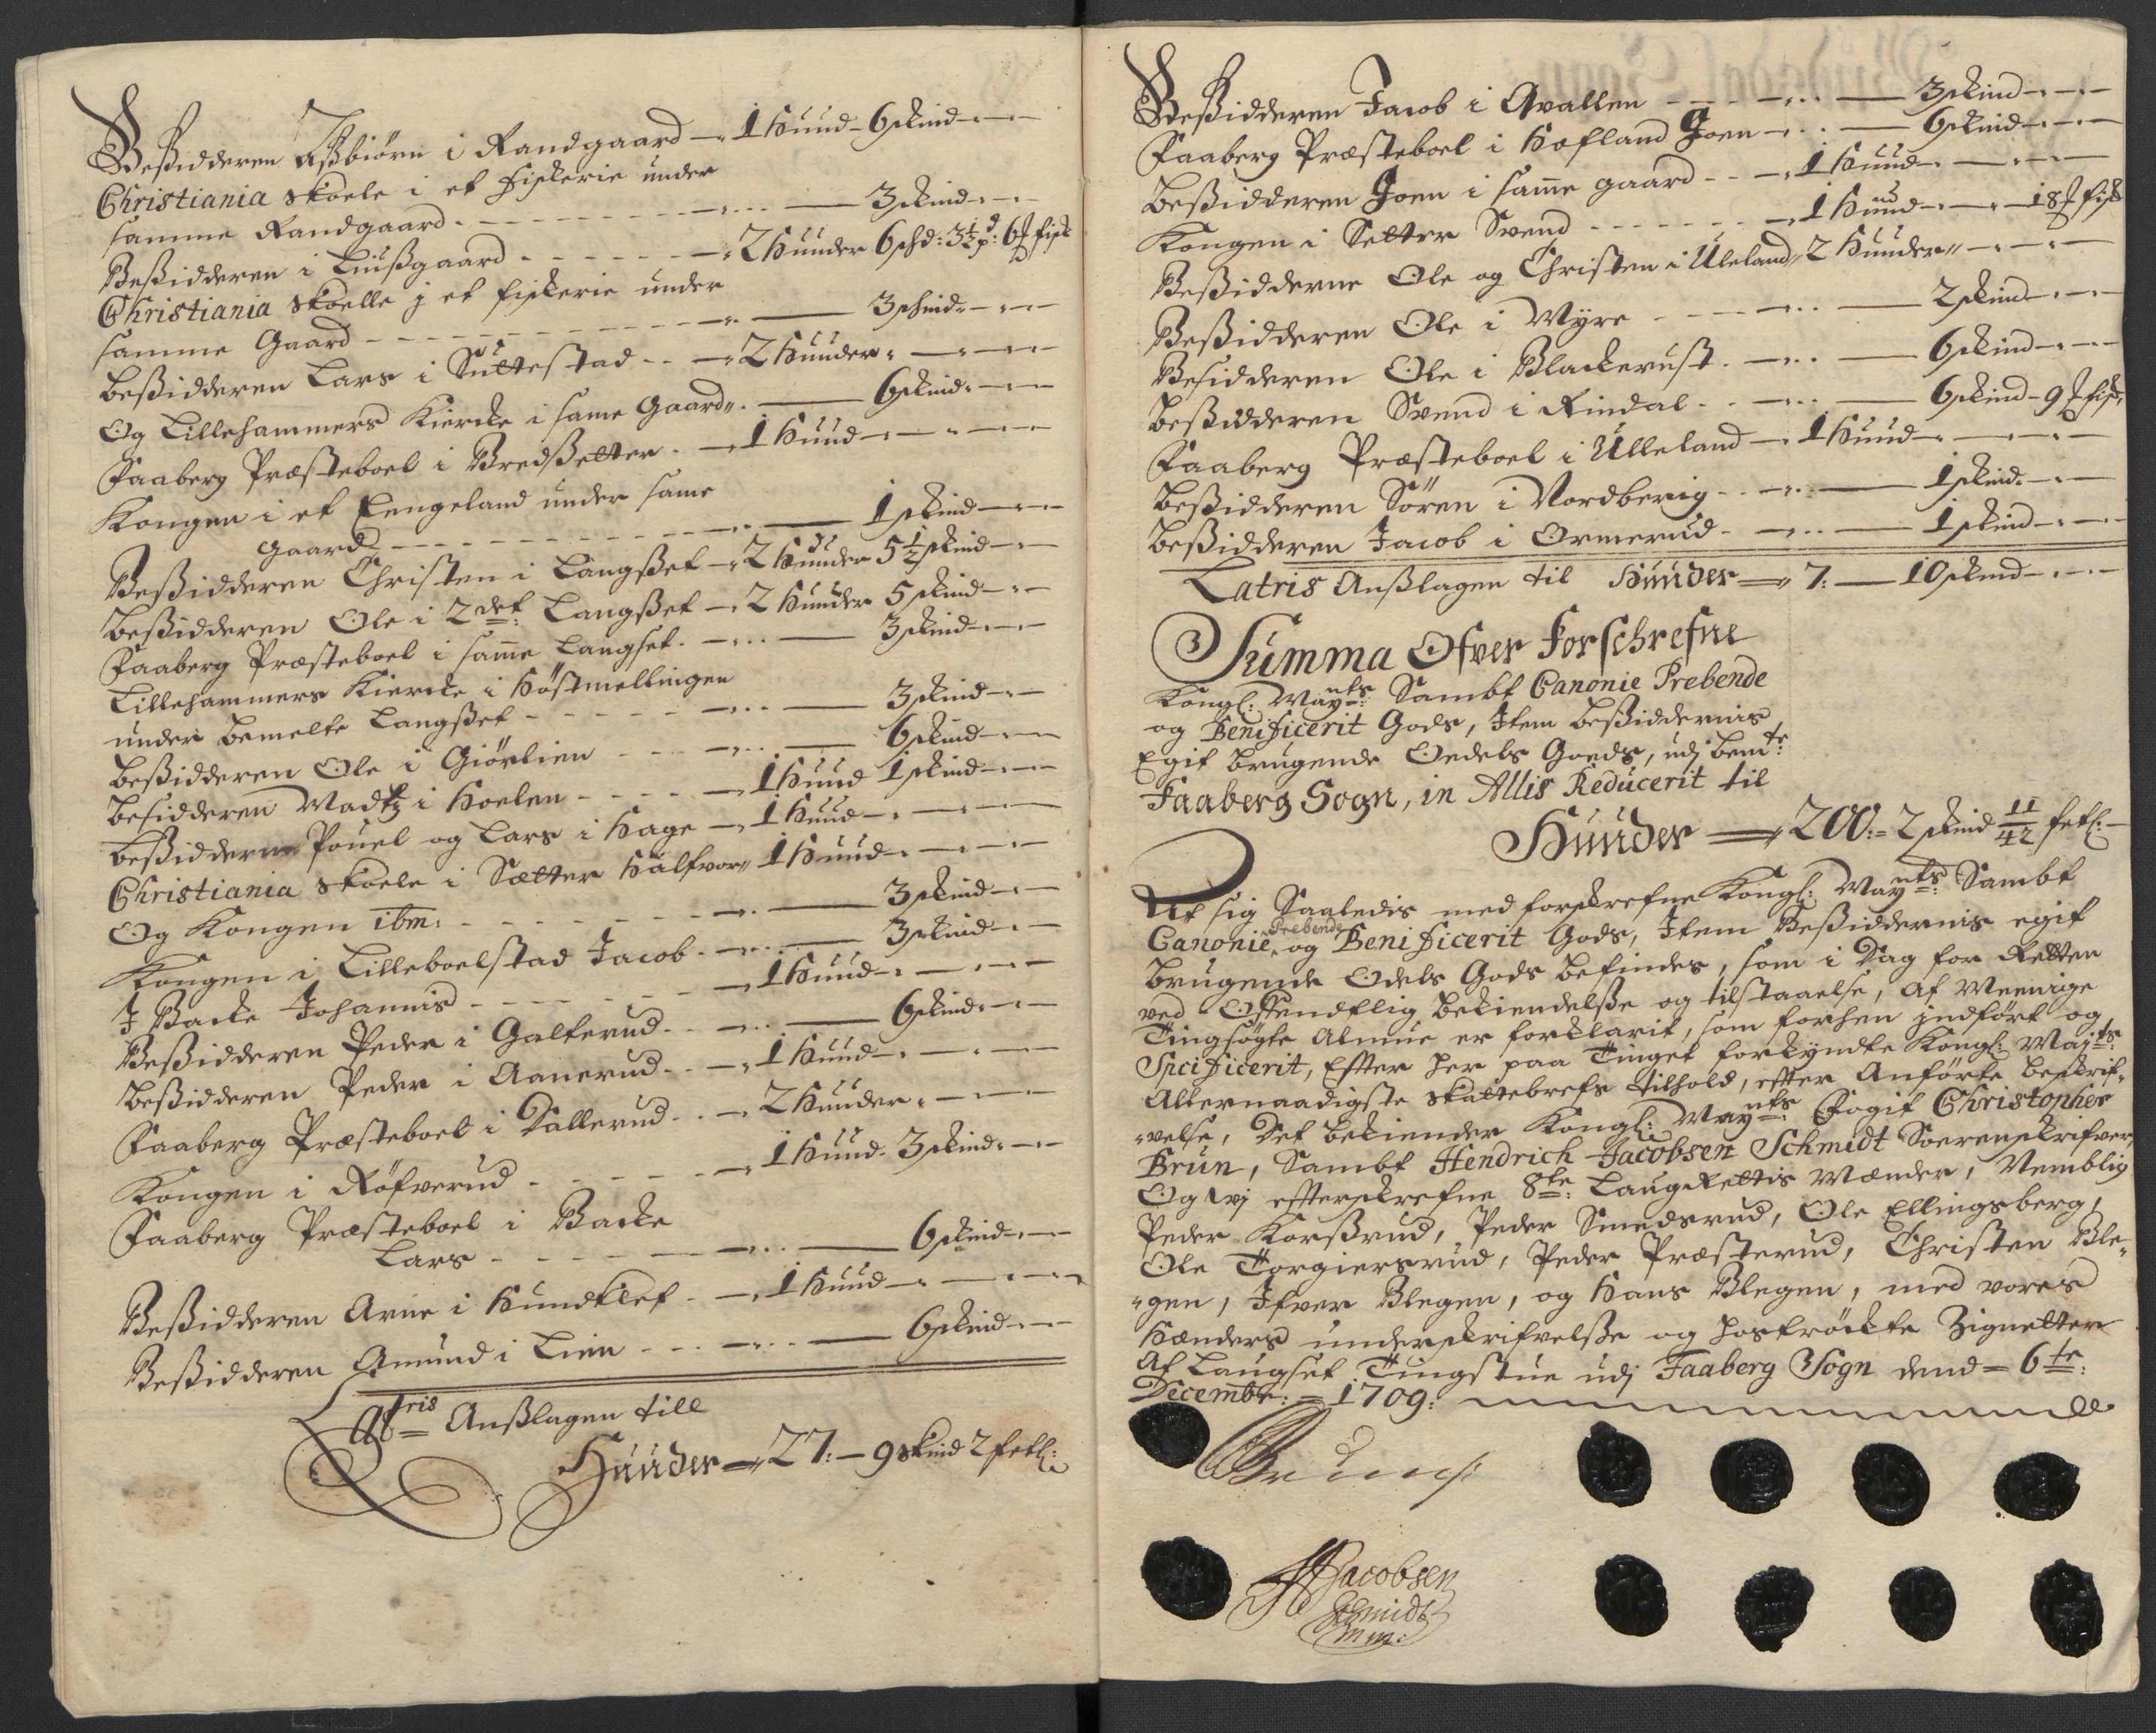 Beßidderen Aßbiörn i Randgaard — 1 Huud - 6 skind
Christiania skoele i et fiskerie under
samme Randgaard — 3 skind
Beßidderen i Liußgaard — 2 Huuder 6 schd: 3½ p: 6 fisk
Christiania Skoelle j et fiskerie under
samme Gaard — 3 skind
Beßidderen Lars i Suttestad — 2 Huuder
Og Lillehammers Kiercke i same Gaard — 6 skind
Faaberg Præsteboel i Bredßetter — 1 Huud
Kongen i et Eengeland under same
gaard — 1 skind
Beßidderen Christen i Langßet — 2 Huuder 5½ skind
Beßidderen Ole i 2det Langßet — 2 Huuder 5 skind
Faaberg Præsteboel i same Langset — 3 skind
Lillehammers Kiercke i Höstmellingen
under bemelte Langßet — 3 skind
Beßidderen Ole i Giörlien — 6 skind
Besidderen Madtz i Hoelen — 1 Huud 1 skind
Beßidderne Pouel og Lars i Hage — 1 Huud
Christiania skoele i Sætter Halfvor — 1 Huud
Og Kongen ibm: — 3 skind
Kongen i Lilleboelstad Jacob — 3 skind
I Backe Johannis — 1 Huud
Beßidderen Peder i Galterud — 6 skind
Beßidderen Peder i Aanerud — 1 Huud
Faaberg Præsteboel i Dallerud — 2 Huuder
Kongen i Röfverud — 1 Huud 3 skind
Faaberg Præsteboel i Backe
Lars — 6 skind
Beßidderen Arne i Hundklef — 1 Huud
Beßidderen Amund i Lien — 6 skind
Latris Anßlagen till
Huuder — 27: — 9 skind 2 fetl:
Beßidderen Jacob i Qvallen — 3 skind
Faaberg Præsteboel i Hofland Joen — 6 skind
Beßidderen Joen i same gaard — 1 Huud
Kongen i Setter Svend — 1 Huud — 18 fisk
Beßidderne Ole og Christen i Uleland 2 Huuder
Beßidderen Ole i Myre — 2 skind
Besidderen Ole i Blackerust — 6 skind
Beßidderen Svend i Rindal — 6 skind - 9 fisk
Faaberg Præsteboel i Ulleland — 1 Huud
Beßidderen Sören i Nordberig — 1 skind
Beßidderen Jacob i Ormerud — 1 skind
Latris Anßlagen til Huuder — 7: — 10 skind
Summa Ofver Forschrefne
Kongl: Mayts Sambt Canonie Prebende
og Benificerit Gods, Item Beßiddernis
Egit brugende Oedels Goeds, udj bemte
Faaberg Sogn, in Allis Reducerit til
Huuder — 200: = 2 skind 11/42 fetl:
At sig Saaledis med forskrefne Kongl: Mayts: Sambt
Canonie Prebende og Benificerit Gods, Item Beßiddernis egit
brugende Odels Gods befindes, som i Dag for Retten
ved Offendtlig bekiendelße og tilstaaelse, af Meenige
Tingsögte Almue er forklarit, som forhen jndfört og
Specificerit, Efter her paa Tinget forkyndte Kongl: Mayts:
Allernaadigste Skattebrefs tilhold, efter Anförte beskrif-
velse, Det bekiender Kongl: Mayts: Fogit Christopher
Brun, Sambt Hendrich Jacobsen Schmidt Sorenskrifver,
Og vj effterskrefne 8te: Laugrettis Mænder, Nemblig
Peder Korßrud, Peder Smedsrud, Ole Ellingsberg,
Ole Torgiersrud, Peder Præsterud, Christen Ble-
gen, Ifver Blegen, og Hans Blegen, med vores
Hænders underskrifvelße og hoströckte Zignetter
Af Laugset Tingstue udj Faaberg Sogn dend = 6te:
Decembr: = 1709:
Brun
HJacobsen
Schmidt
mm: